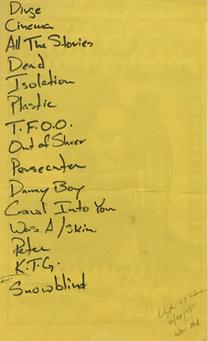 Dirge
Cinema
All The Stories
Dead
Isolation
Plastic
T.F.O.O.
Out of
Persecuter
Danny Boy
Crawl Into You
Was A /skin
Peter
K.T.G.
Snowblind